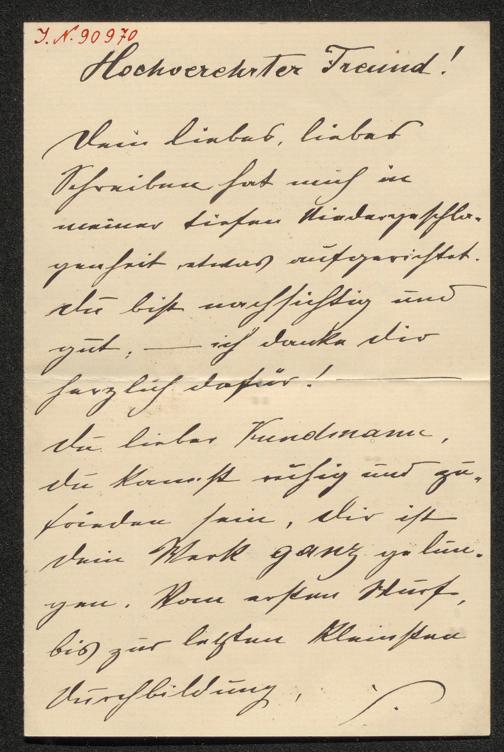 J. N. 90970
Hochverehrter Freund!
Dein liebes, liebes
Schreiben hat mich in
meiner tiefen Niedergeschla-
genheit etwas aufgerichtet.
Du bist nachsichtig und
gut, — ich danke Dir
herzlich dafür! —
Du lieber Kundmann,
Du kannst ruhig und zu-
frieden sein, Dir ist
Dein Werk ganz gelun-
gen. Vom ersten Wurf,
bis zur letzten kleinsten
Durchbildung,